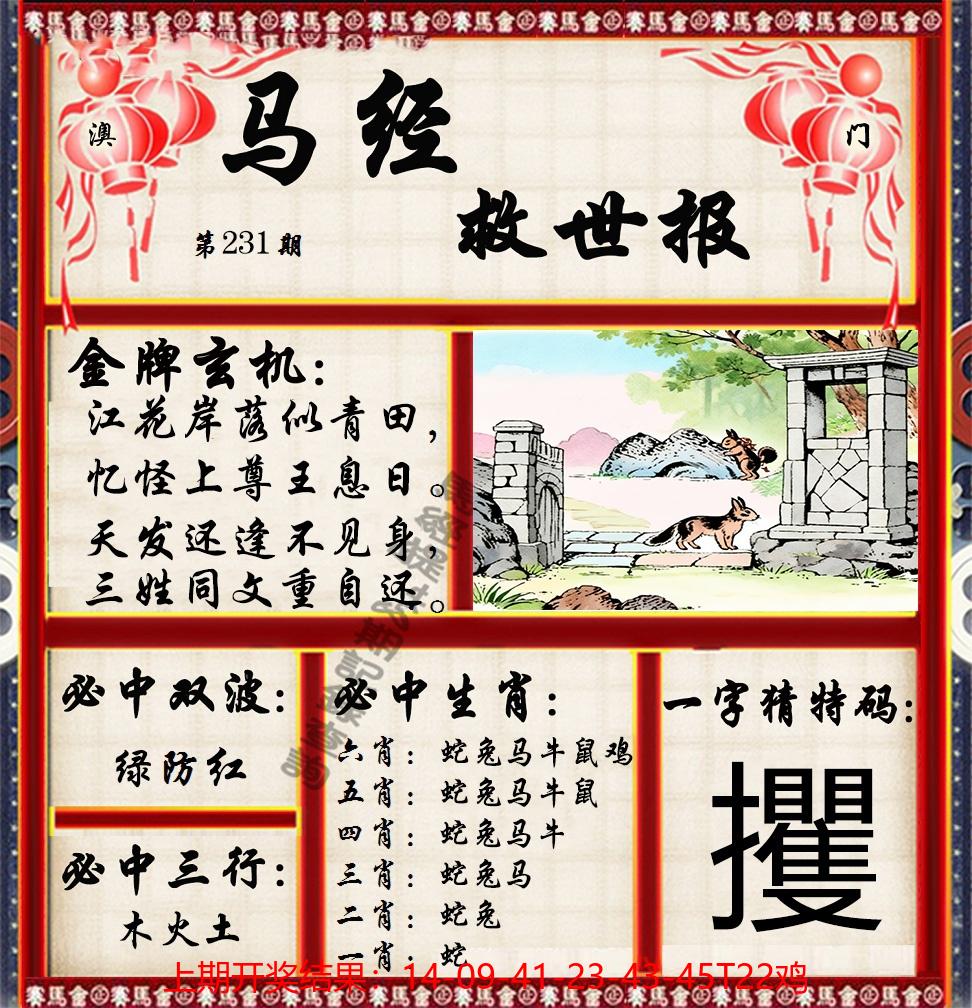 澳
门
马经
救世报
第231期
金牌玄机：
江花岸落似青田，
忆怪上尊王息日。
天发还逢不见身，
三姓同文重自还。
必中双波：
绿防红
必中三行：
木火土
必中生肖：
六肖：蛇兔马牛鼠鸡
五肖：蛇兔马牛鼠
四肖：蛇兔马牛
三肖：蛇兔马
二肖：蛇兔
一肖：蛇
一字猜特码：
攫
上期开奖结果：14-09-41-23-43-45T22鸡